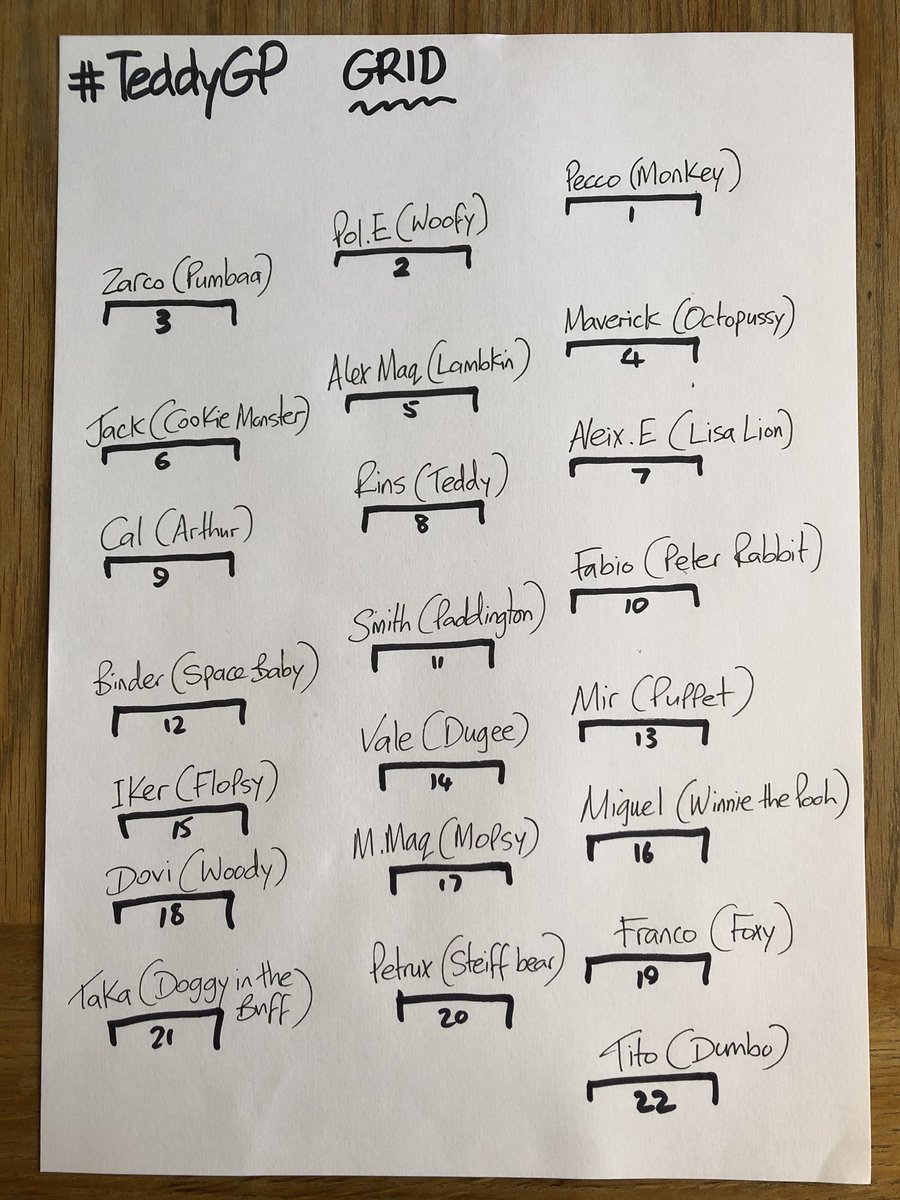 #TeddyGP GRID
Pecco (Monkey)
1
Pol.E (Woofy)
2
Zarco (Pumbaa)
3
Maverick (Octopussy)
4
Alex Maq (Lambkin)
5
Jack (Cookie Monster)
6
Aleix.E (Lisa Lion)
7
Rins (Teddy)
8
Cal (Arthur)
9
Fabio (Peter Rabbit)
10
Smith (Paddington)
11
Binder (Space Baby)
12
Mir (Puppet)
13
Vale (Dugee)
14
Iker (Flopsy)
15
Miguel (Winnie the Pooh)
16
M.Maq (Mopsy)
17
Dovi (Woody)
18
Franco (Foxy)
19
Petrux (Steiff bear)
20
Taka (Doggy in the
Buff)
21
Tito (Dumbo)
22